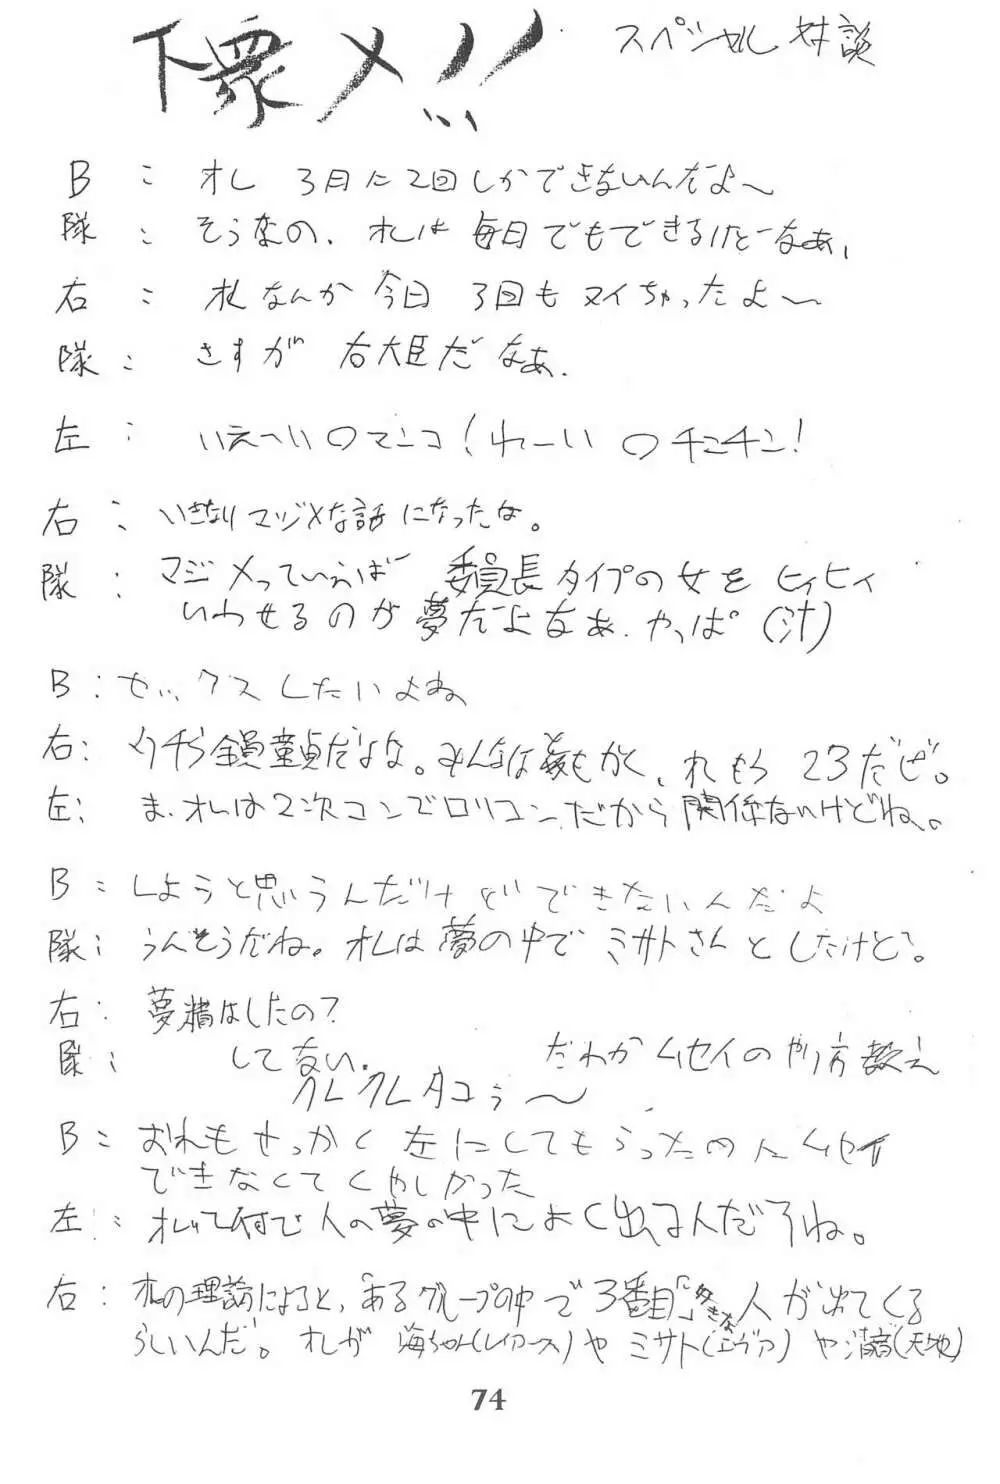 下衆メ!! スペシャル対談
B: オレ 3月に2回しかできないんだよ〜
隊: そうなの、オレは毎日でもできるけどーなぁ、
右: オレなんか今日 3回もヌイちゃったよ〜
隊: さすが 右大臣だなぁ.
左: いえーいのマンコ!れーいのチンチン!
右: いきなりマジメな話になったな。
隊: マジメっていえば 委員長タイプの女をヒィヒィ
いわせるのが夢だよなぁ. やっぱ(汁)
B: セックスしたいよね
右: ウチら全員童貞だよな。みんな
オレもう 23だぜ。
左: ま、オレは2次コンでロリコンだから関係ないけどね。
B: しようと思うんだけどできないんだよ
隊: うんそうだね。オレは夢の中でミサトさんとしたけど。
右: 夢精はしたの?
隊: してない. だれかムセイのやり方教え
クレクレタコラ〜
B: おれもせっかく左にしてもらったのにムセイ
できなくてくやしかった
左: オレって何で人の夢の中によく出るんだろね。
右: オレの理論によると、あるグループの中で3番目に好きな人が出てくる
らしいんだ。オレが 海ちゃん(レイアース)や ミサト(エヴァ) や清音(天地)
74